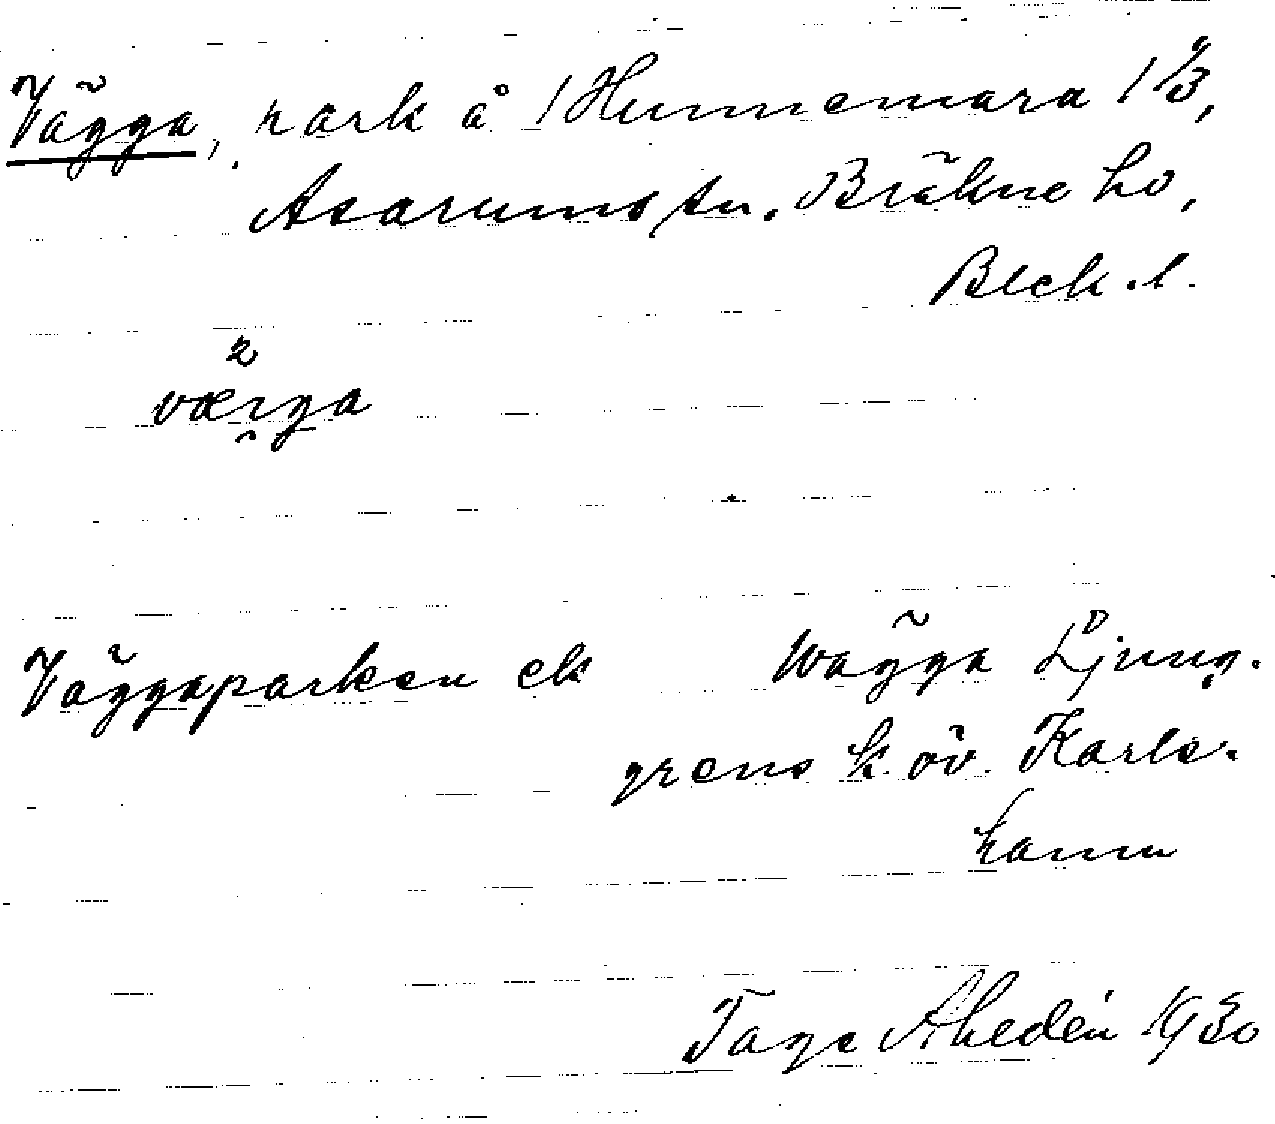 Vägga, park å Hunnemara 1 3,
Asarums sn. Bräkne hd,
Blek. l.
vægga
Väggaparken ek Wägga Ljung-
grens k. öv. Karls-
hamn
Tage Ahedén 1930